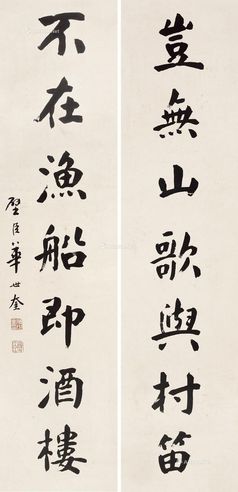 豈無山歌與村笛
不在漁船即酒樓
壁臣華世奎